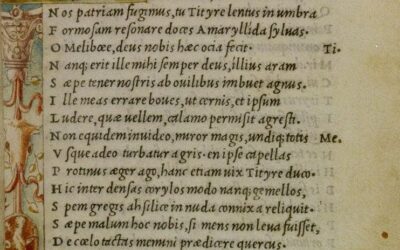 N os patriam fugimus, tu Tityre lentus in umbra
F ormosam resonare doces Amaryllida syluas.
O Melibœe, deus nobis hæc ocia fecit. Ti.
N anq; erit ille mihi semper deus, illius aram
S æpe tener nostris ab ouilibus imbuet agnus.
I lle meas errare boues, ut cernis, et ipsum
L udere, quæ uellem, calamo permisit agresti.
N on equidem inuideo, miror magis, undiq; totis Me.
V sque adeo turbatur agris. en ipse capellas
P rotinus æger ago, hanc etiam uix Tityre duco.
H ic inter densas corylos modo nanq; gemellos,
S pem gregis ah silice in nuda connixa reliquit.
S æpe malum hoc nobis, si mens non leua fuisset,
D e cœlo tactas memini prædicere quercus.